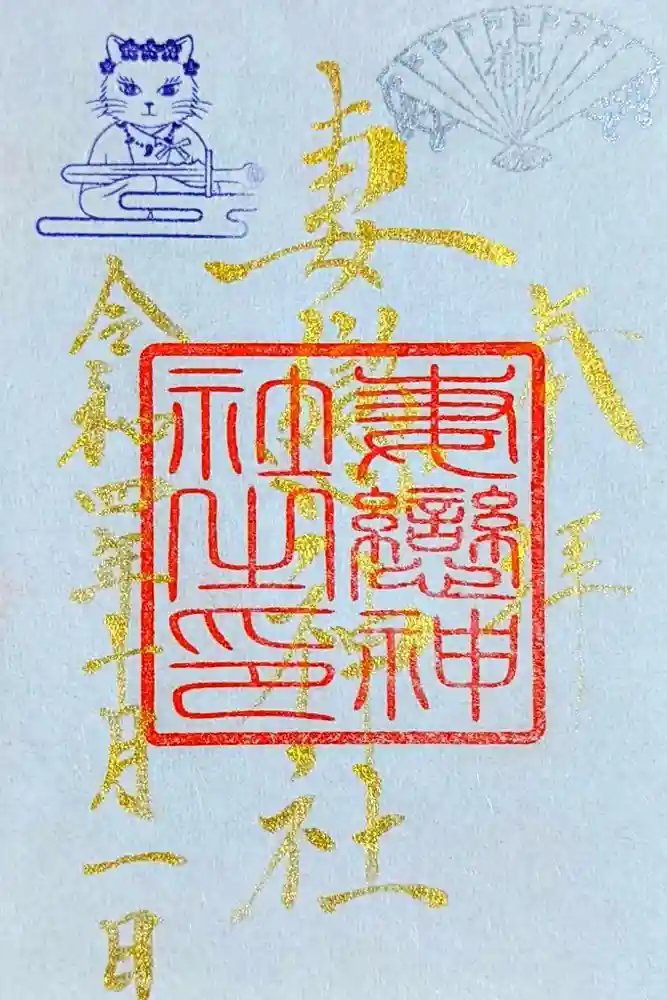 奉拝
妻戀神社
令和四年十月一日
妻戀神
社之印